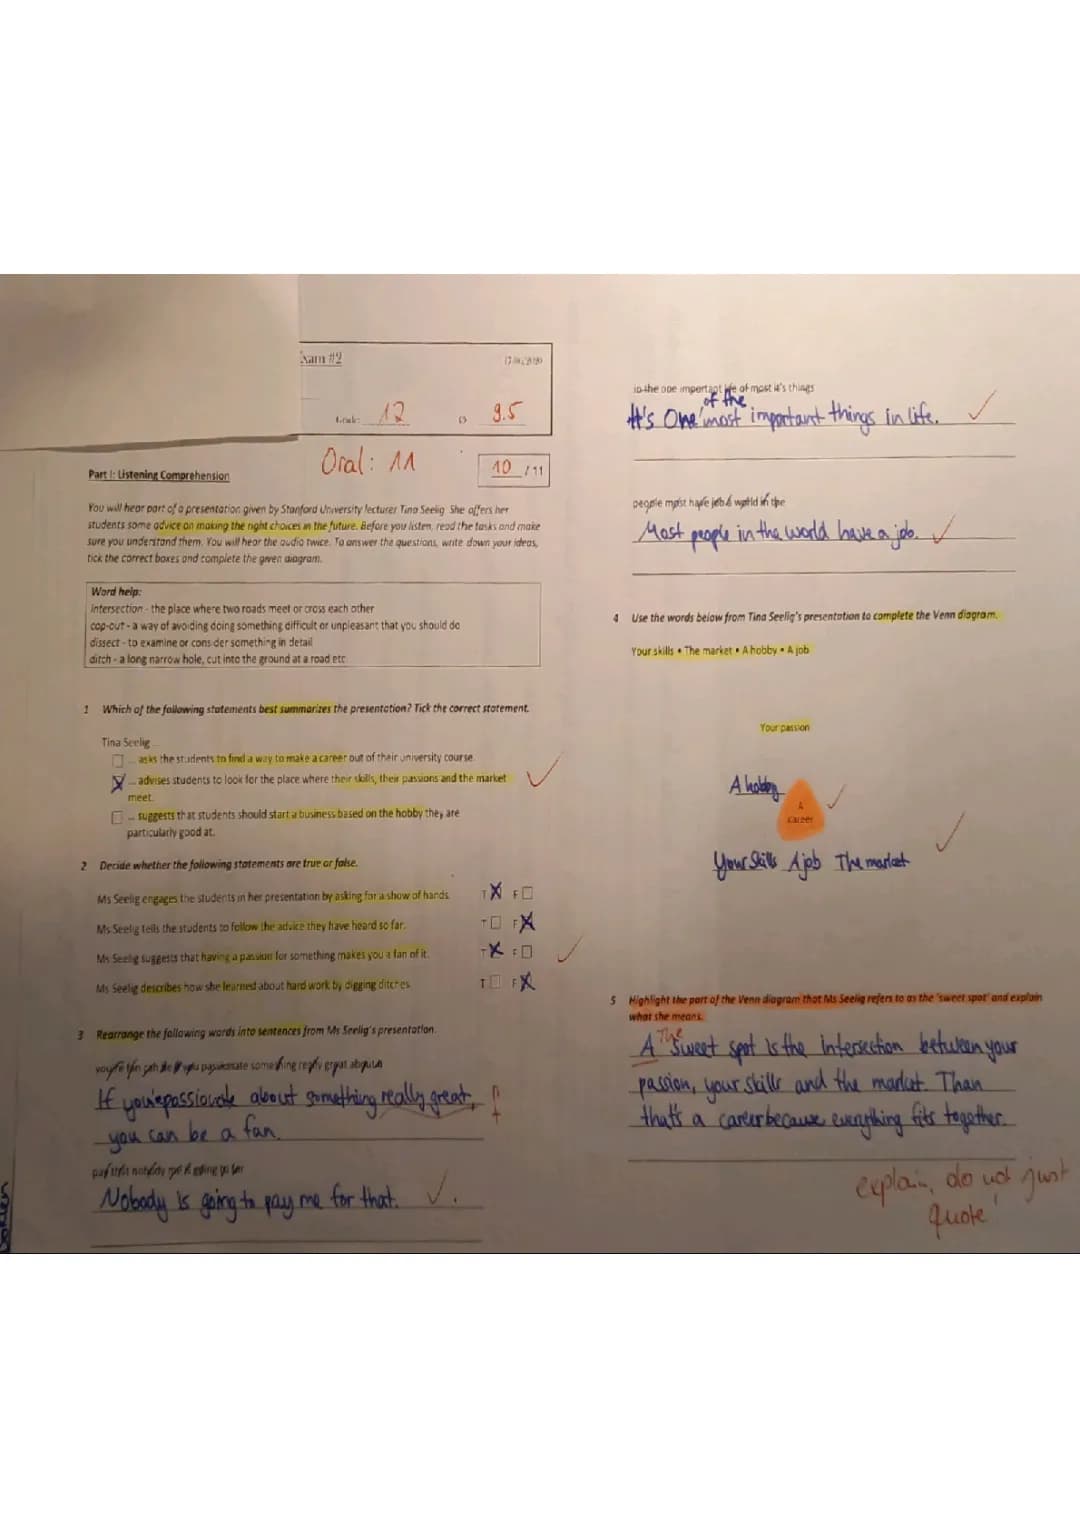 Exam #2
Grade: 12
9.5
Oral: 11
Part I: Listening Comprehension
10 /11
You will hear part of a presentation given by Stanford University lecturer Tina Seelig. She offers her
students some advice on making the right choices in the future. Before you listen, read the tasks and make
sure you understand them. You will hear the audio twice. To answer the questions, write down your ideas,
tick the correct boxes and complete the given diagram.
Word help:
intersection - the place where two roads meet or cross each other
cop-out - a way of avoiding doing something difficult or unpleasant that you should do
dissect - to examine or consider something in detail
ditch - a long narrow hole, cut into the ground at a road etc
1 Which of the following statements best summarizes the presentation? Tick the correct statement.
Tina Seelig ...
... asks the students to find a way to make a career out of their university course.
... advises students to look for the place where their skills, their passions and the market
meet.
... suggests that students should start a business based on the hobby they are
particularly good at.
2 Decide whether the following statements are true or false.
Ms Seelig engages the students in her presentation by asking for a show of hands. T F
Ms Seelig tells the students to follow the advice they have heard so far. T F
Ms Seelig suggests that having a passion for something makes you a fan of it. T F
Ms Seelig describes how she learned about hard work by digging ditches T F
3 Rearrange the following words into sentences from Ms Seelig's presentation.
If you're passionate about something really great,
you can be a fan.
f
Nobody is going to pay me for that.
in the one important life of most it's things
of the
It's One most important things in life.
people most have job a world in the
Most people in the world have a job.
4 Use the words below from Tina Seelig's presentation to complete the Venn diagram.
Your skills • The market • A hobby • A job
Your passion
A hobby
A
career
Your Skills A job The market
5 Highlight the part of the Venn diagram that Ms Seelig refers to as the 'sweet spot' and explain
what she means.
The
A sweet spot is the intersection between your
passion, your skills and the market. Than
that's a career because everything fits together.
explain, do not just
quote!